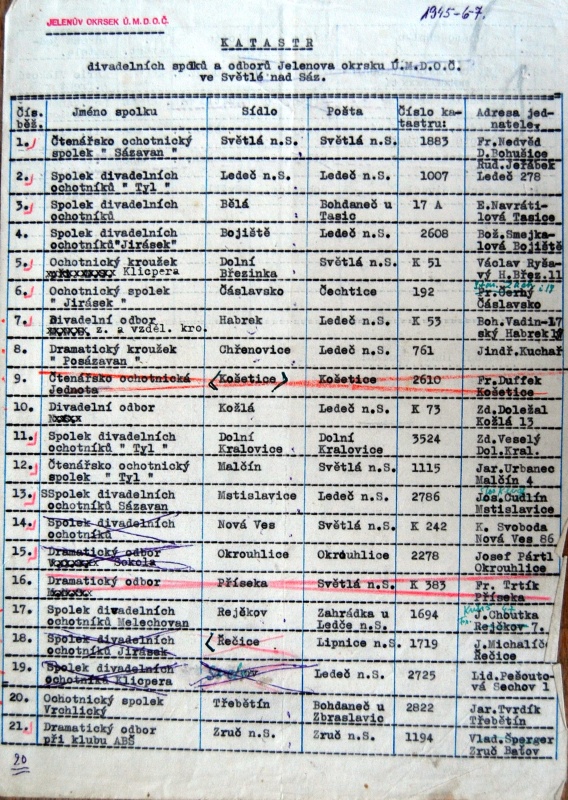 JELENŮV OKRSEK Ú.M.D.O.Č.
1945-6-7.
KATASTR
divadelních spolků a odborů Jelenova okrsku Ú.M.D.O.Č.
ve Světlé nad Sáz.
Čís. běž. Jméno spolku Sídlo Pošta Číslo ka-tastru: Adresa jed-natele,
1. Čtenářsko ochotnický Světlá n.S. Světlá n.S. 1883 Fr.Nedvěd
spolek " Sázavan" D.Bohušice
Rud.Jeřábek
2. Spolek divadelních Ledeč n.S. Ledeč n.S. 1007 Ledeč 278
ochotníků " Tyl "
3. Spolek divadelních Bělá Bohdaneč u 17 A E.Navráti-
ochotníků Tasic lová Tasice
4. Spol. divadelních Bojiště Ledeč n.S. 2608 Bož.Smejka-
ochotníků"Jirásek" lová Bojiště
5. Ochotnický kroužek Dolní Ledeč n.S. K 51 Václav Ryša-
Klicpera Březinka vý H.Břez.11
6. Ochotnický spolek Čáslavsko Čechtice 192 Fr.Černý
" Jirásek " Čáslavsko
7. Divadelní odbor Habrek Ledeč n.S. K 53 Boh.Vadin-17
z. a vzděl. kro. ský Habrek
8. Dramatický kroužek Chřenovice Ledeč n.S. 761 Jindř.Kuchař
" Posázavan "
9. Čtenářsko ochotnická Košetice Košetice 2610 Fr.Duffek
Jednota Košetice
10. Divadelní odbor Kožlá Ledeč n.S. K 73 Zd.Doležal
Kožlá 13
11. Spolek divadelních Dolní Dolní 3524 Zd.Veselý
ochotníků " Tyl " Kralovice Kralovice Dol.Kral.
12. Čtenářsko ochotnický Malčín Světlá n.S. 1115 Jar.Urbanec
spolek " Tyl " Malčín 4
13. SSpolek divadelních Mstislavice Ledeč n.S. 2786 Jos.Cudlín
ochotníků Sázavan Mstislavice
14. Spolek divadelních Nová Ves Světlá n.S. K 242 K. Svoboda
ochotníků Nová Ves 86
15. Dramatický odbor Okrouhlice Okrouhlice 2278 Josef Pártl
Sokola Okrouhlice
16. Dramatický odbor Příseka Světlá n.S. K 383 Fr. Trtík
Příseka
17. Spolek divadelních Rejčkov Zahrádka u 1694 J.Choutka
ochotníků Melechovan Ledče n.S. Rejčkov 7.
18. Spolek divadelních Řečice Lipnice n.S. 1719 J.Michalíč
ochotníků Jirásek Řečice
19. Spolek divadelních Ledeč n.S. 2725 Lid.Pešouto-
ochotníků Klicpera vá Sechov 1
20. Ochotnický spolek Třebětín Bohdaneč u 2822 Jar.Tvrdík
Vrchlický Zbraslavic Třebětín
21. Dramatický odbor Zruč n.S. Zruč n.S. 1194 Vlad.Šperger
při klubu ABŠ Zruč Baťov
20